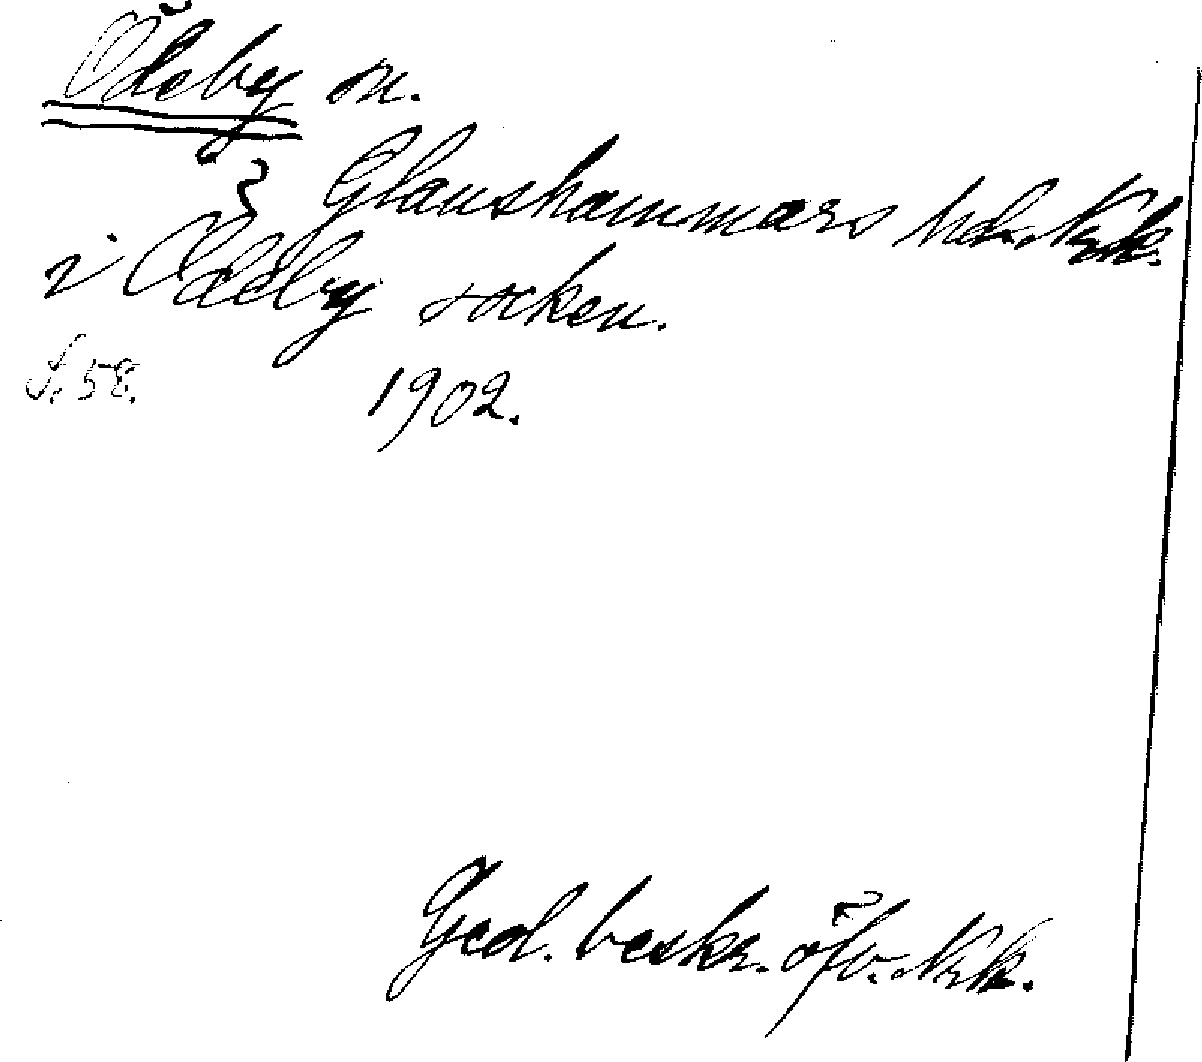 Ödeby sn.
Glanshammars hd. Nrk.
i Ödeby socken.
s. 58.
1902.
Geol. beskr. öfv. Nrk.